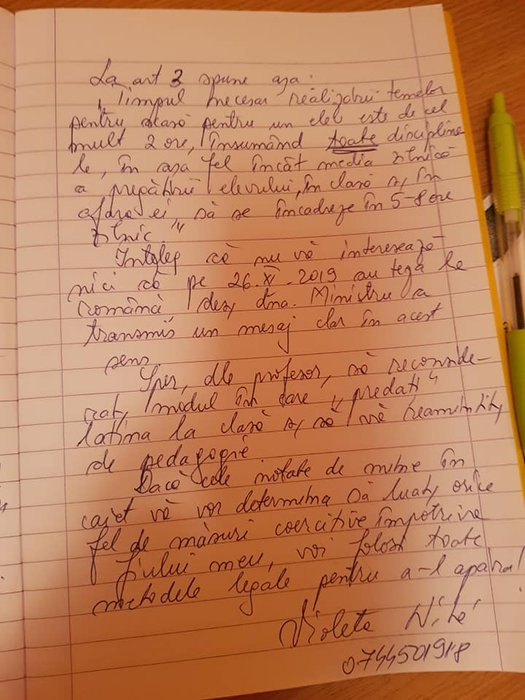 La art 3 spune așa:
"Timpul necesar realizării temelor
pentru acasă pentru un elev este de cel
mult 2 ore, însumând toate discipline
le, în așa fel încât media zilnică
a pregătirii elevului, în clasă și în
afara ei, să se încadreze în 5-8 ore
zilnic"
Înțeleg că nu vă interesează
nici că pe 26.XI.2019 au teză la
română, deși dna. Ministru a
transmis un mesaj clar în acest
sens.
Sper, dle profesor, să reconside-
rați modul în care "predați"
latina la clasă și să vă reamintiți
de pedagogie.
Dacă cele notate de mine în
caiet vă vor determina să luați orice
fel de măsuri coercitive împotriva
fiului meu, voi folosi toate
metodele legale pentru a-l apăra!
Violeta
0744501918